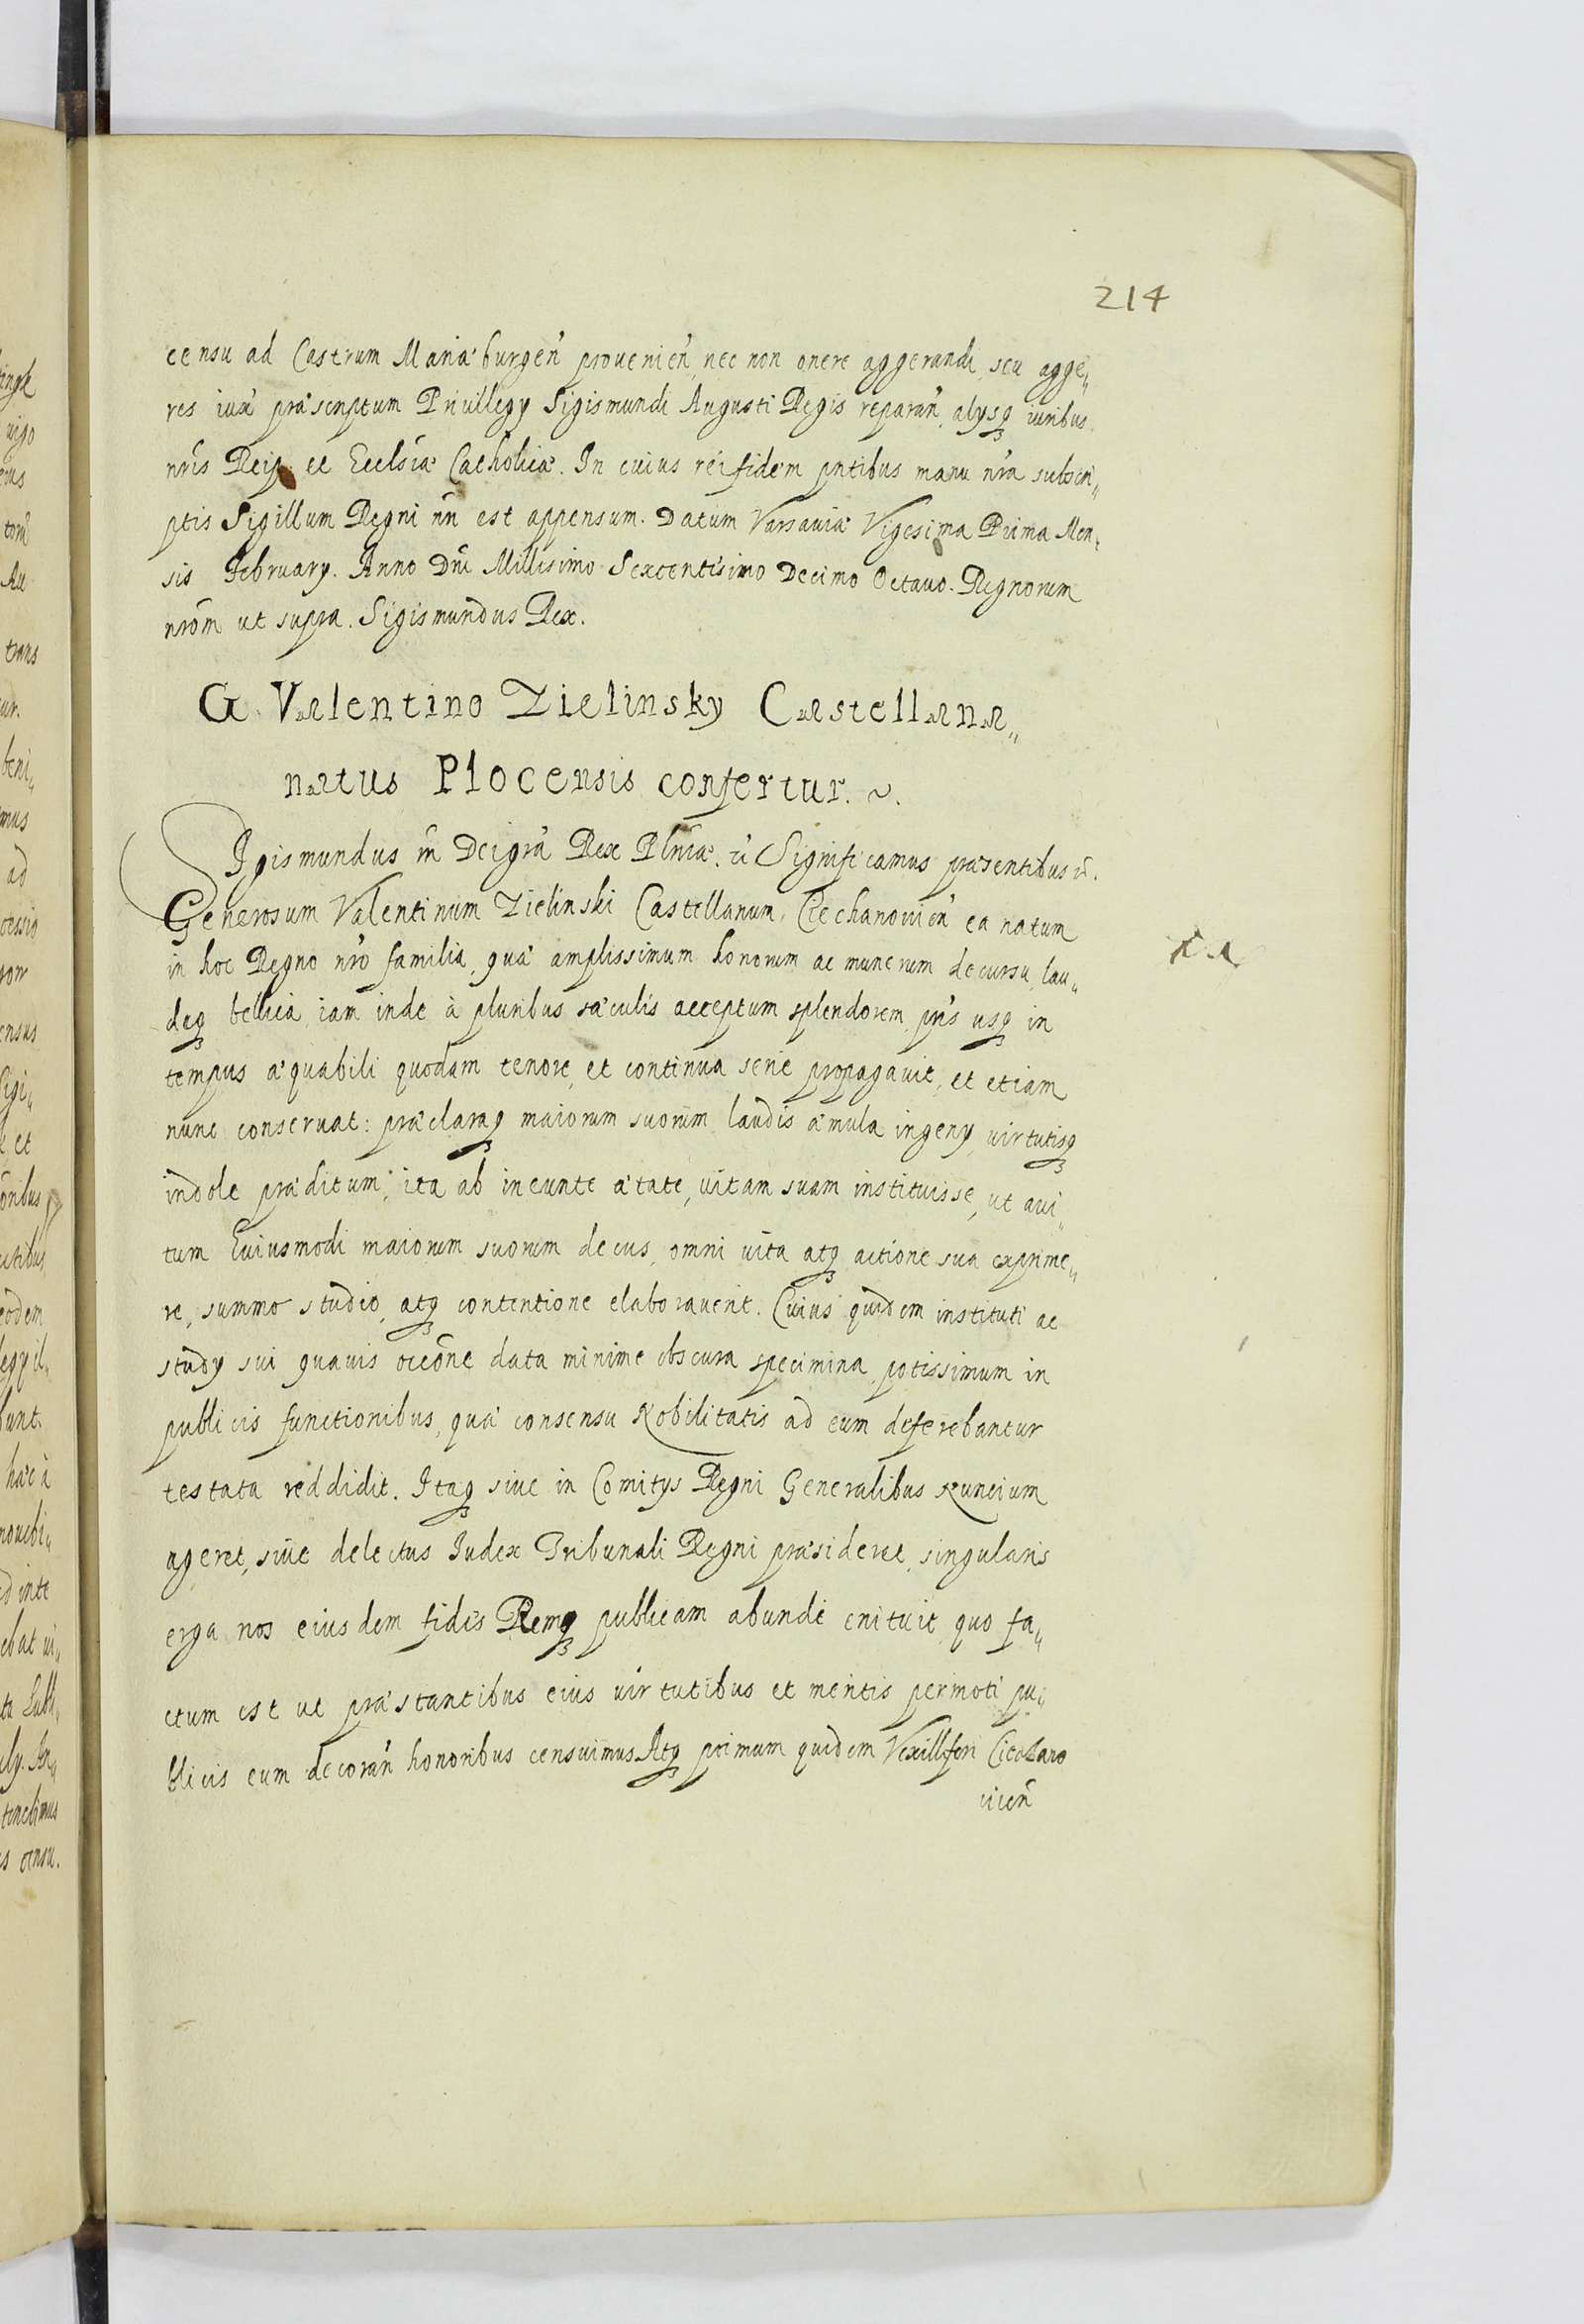 214
censu ad Castrum Mariæburgeñ prouenieñ, nec non onere aggerandi seu agge„
res iuxᵃ præscriptum Priuillegÿ Sigismundi Augusti Regis reparañ, alÿsqꝫ iuribus
nris̃ Reip. et Ecclsiæ Catholicæ. In cuius rei fidem pntibus manu nrã subscri„
ptis Sigillum Regni nñ est appensum. Datum Varsauiæ Vigesima Prima Men„
sis February. Anno Dni Millisimo Sexcentisimo Decimo Octauo. Regnorum
nrõm ut supra. Sigismundus Rex.
G. Valentino Zielinsky Castellana„
natus Plocensis confertur. ~.
Sigismundus m̃ Dei grã Rex Plniæ. ĩ Significamus præsentibus ñ.
Generosum Valentinum Zielinski Castellanum, Ciechanouieñ ea natum
in hoc Regno nrõ familia, quæ amplissimum honorum ac munerum decursu, lau„
deqꝫ bellica iam inde à pluribus sæculis acceptum splendorem, pñs usqꝫ in
tempus æquabili quodam tenore, et continua serie propagauit, et etiam
nunc conseruat: præclaraqꝫ maiorum suorum laudis æmula ingenÿ, uirtutisqꝫ
indole præditum, ita ab ineunte ætate, uitam suam instituisse, ut aui„
tum Euiusmodi maiorum suorum decus, omni uita atqꝫ actione sua exprime„
re, summo studio, atqꝫ contentione elaborauerit. Cuius quidem instituti ac
studÿ sui quauis occõne data minime obscura specimina potissimum in
publicis functionibus, quæ consensu Nobilitatis ad eum deferebantur
testata reddidit. Itaqꝫ siue in Comitÿs Regni Generalibus Nuncium
ageret, siue delectus Iudex Tribunali Regni præsideret, singularis
erga nos eiusdem fides Remqꝫ publicam abunde enituit, quo fa„
ctum est ut præstantibus eius uirtutibus et meritis permoti pu„
blicis eum decorañ honoribus censuimus Atqꝫ primum quidem Vexilliferi
uieñ